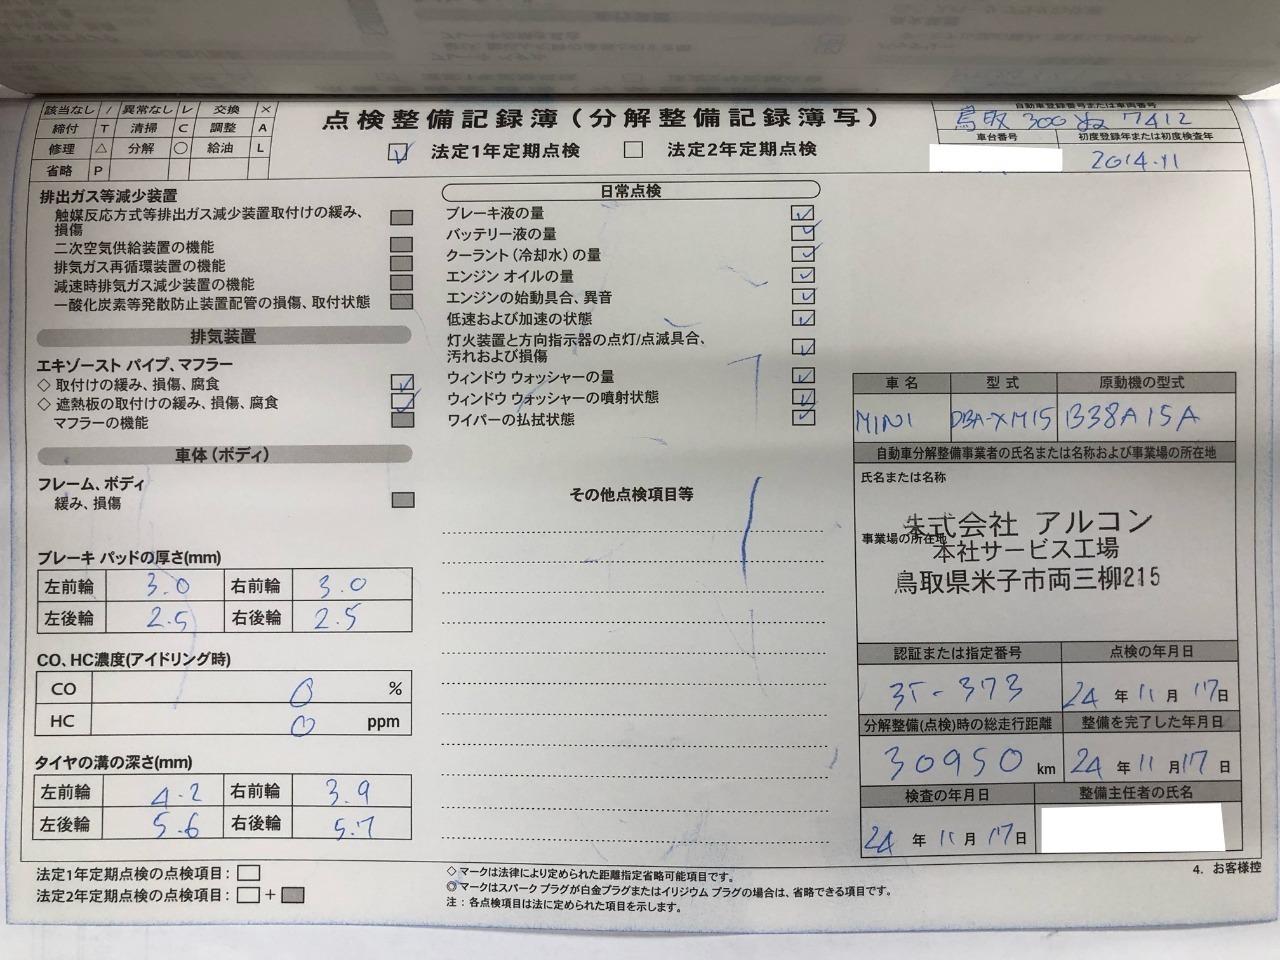 該当なし / 異常なし レ 交換 ×
締付 T 清掃 C 調整 A
修理 △ 分解 ○ 給油 L
省略 P
点検整備記録簿(分解整備記録簿写)
法定1年定期点検 法定2年定期点検
自動車登録番号または車両番号
鳥取 300 ぬ 7412
車台番号 初度登録年または初度検査年
2014.11
排出ガス等減少装置
触媒反応方式等排出ガス減少装置取付けの緩み、
損傷
二次空気供給装置の機能
排気ガス再循環装置の機能
減速時排気ガス減少装置の機能
一酸化炭素等発散防止装置配管の損傷、取付状態
排気装置
エキゾースト パイプ、マフラー
◇ 取付けの緩み、損傷、腐食
◇ 遮熱板の取付けの緩み、損傷、腐食
マフラーの機能
車体(ボディ)
フレーム、ボディ
緩み、損傷
ブレーキ パッドの厚さ(mm)
左前輪 3.0 右前輪 3.0
左後輪 2.5 右後輪 2.5
CO、HC濃度(アイドリング時)
CO 0 %
HC 0 ppm
タイヤの溝の深さ(mm)
左前輪 4.2 右前輪 3.9
左後輪 5.6 右後輪 5.7
日常点検
ブレーキ液の量
バッテリー液の量
クーラント(冷却水)の量
エンジン オイルの量
エンジンの始動具合、異音
低速および加速の状態
灯火装置と方向指示器の点灯/点滅具合、
汚れおよび損傷
ウィンドウ ウォッシャーの量
ウィンドウ ウォッシャーの噴射状態
ワイパーの払拭状態
その他点検項目等
車名 型式 原動機の型式
MINI DBA-XM15 B38A15A
自動車分解整備事業者の氏名または名称および事業場の所在地
氏名または名称
株式会社 アルコン
事業場の所在地
本社サービス工場
鳥取県米子市両三柳215
認証または指定番号 点検の年月日
3T-373 24 年 11 月 17 日
分解整備(点検)時の総走行距離 整備を完了した年月日
30950 km 24 年 11 月 17 日
検査の年月日 整備主任者の氏名
24 年 11 月 17 日
法定1年定期点検の点検項目:
法定2年定期点検の点検項目: +
◇マークは法律により定められた距離指定省略可能項目です。
◎マークはスパーク プラグが白金プラグまたはイリジウム プラグの場合は、省略できる項目です。
注:各点検項目は法に定められた項目を示します。
4. お客様控